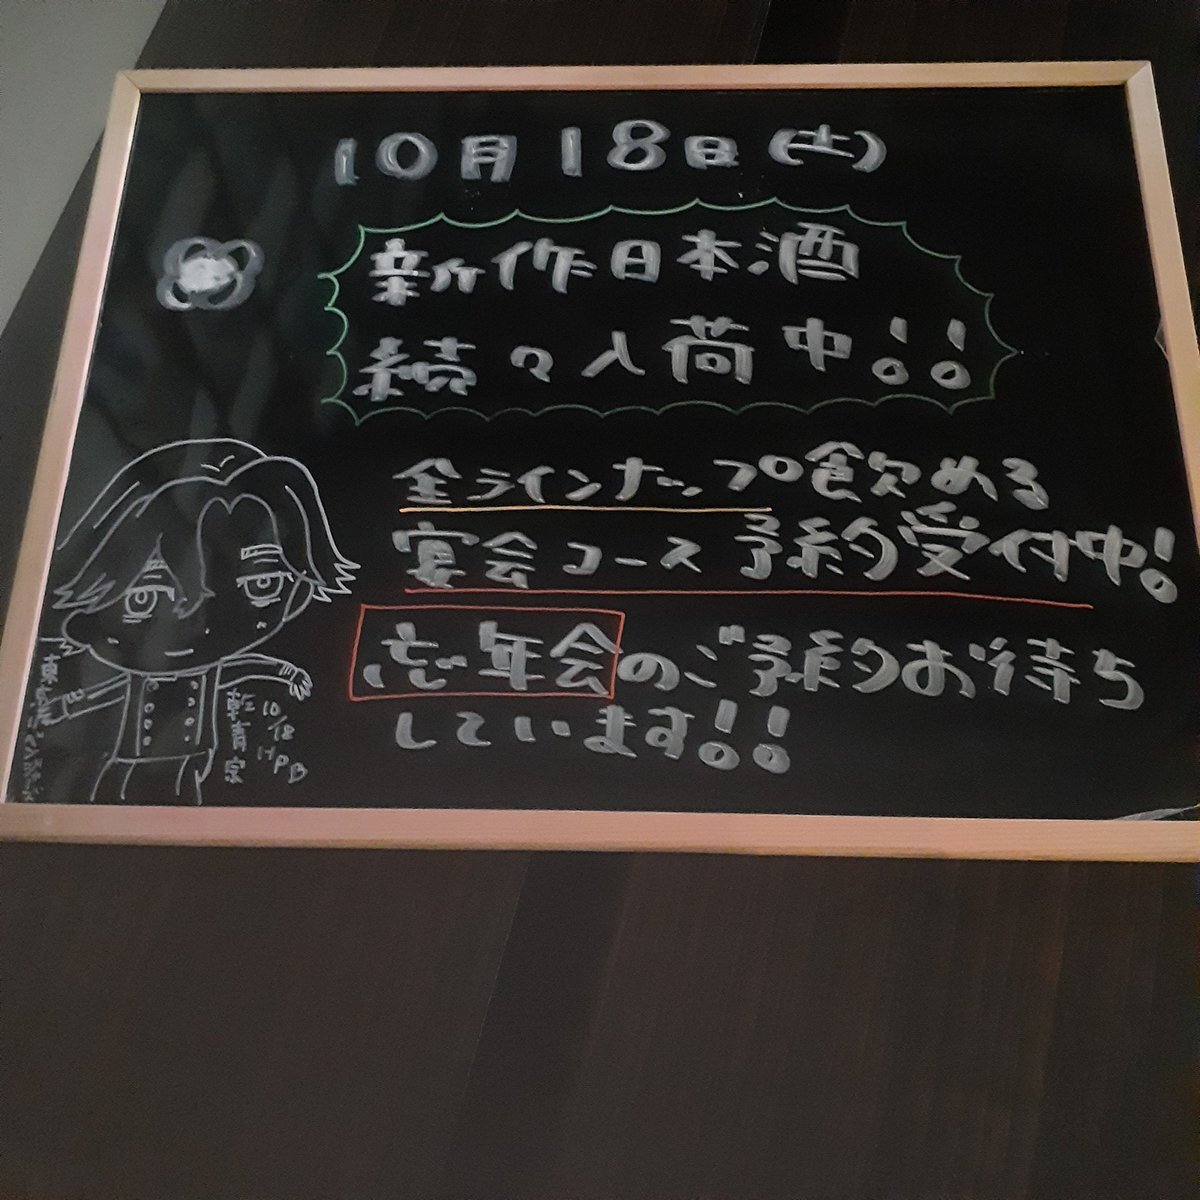 10月18日(土)
新作日本酒
続々入荷中!!
全ラインナップ飲める
宴会コース予約受付中!
忘年会のご予約お待ち
しています!!
10/18
HPB